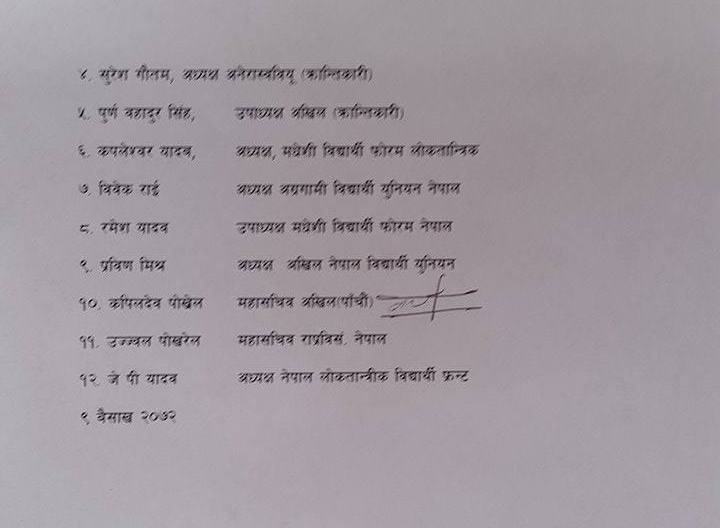 ४. सुरेश गौतम, अध्यक्ष अनेरास्ववियू (क्रान्तिकारी)
५. पुर्ण वहादुर सिंह, उपाध्यक्ष अखिल (क्रान्तिकारी)
६. कपलेश्वर यादव, अध्यक्ष, मधेशी विद्यार्थी फोरम लोकतान्त्रिक
७. विवेक राई अध्यक्ष अग्रगामी विद्यार्थी युनियन नेपाल
८. रमेश यादव उपाध्यक्ष मधेशी विद्यार्थी फोरम नेपाल
९. प्रविण मिश्र अध्यक्ष अखिल नेपाल विद्यार्थी युनियन
१०. कपिलदेव पोख्रेल महासचिव अखिल(पाँचौं)
११. उज्ज्वल पोखरेल महासचिव राप्रविसं. नेपाल
१२. जे पी यादव अध्यक्ष नेपाल लोकतान्त्रीक विद्यार्थी फ्रन्ट
९ वैसाख २०७२